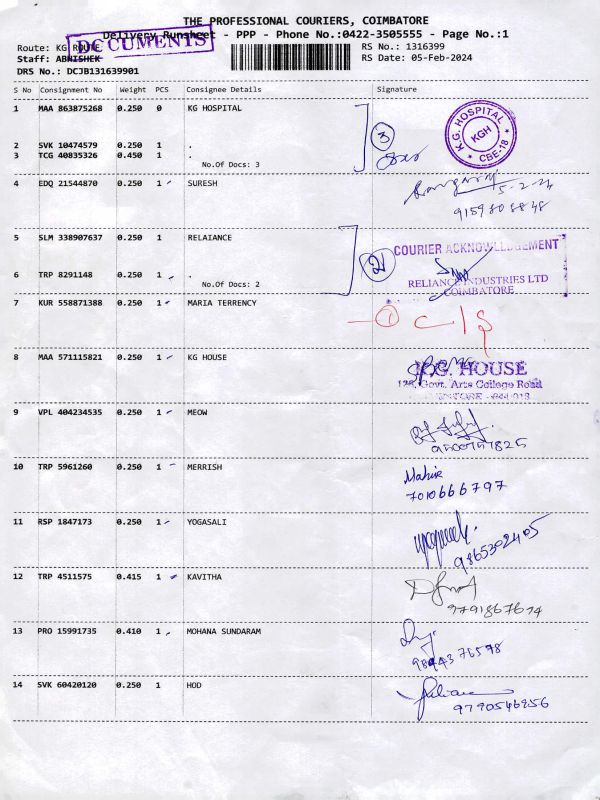 THE PROFESSIONAL COURIERS, COIMBATORE
Delivery Runsheet - PPP - Phone No.:0422-3505555 - Page No.:1
DOCUMENTS
Route: KG ROUTE
Staff: ABHISHEK
DRS No.: DCJB131639901
RS No.: 1316399
RS Date: 05-Feb-2024
S No Consignment No Weight PCS Consignee Details Signature
1 MAA 863875268 0.250 0 KG HOSPITAL
2 SVK 10474579 0.250 1 .
3 TCG 40835326 0.450 1 .
No.Of Docs: 3
3
K.G. HOSPITAL
KGH
CBE-18
4 EDQ 21544870 0.250 1 SURESH
5-2-24
5 SLM 338907637 0.250 1 RELAIANCE
6 TRP 8291148 0.250 1 .
No.Of Docs: 2
2
COURIER ACKNOWLEDGEMENT
RELIANCE INDUSTRIES LTD
COIMBATORE
7 KUR 558871388 0.250 1 MARIA TERRENCY
1 C/S
8 MAA 571115821 0.250 1 KG HOUSE
K.G. HOUSE
Govt. Arts College Road
9 VPL 404234535 0.250 1 MEOW
9500757825
10 TRP 5961260 0.250 1 MERRISH
7010666797
11 RSP 1847173 0.250 1 YOGASALI
9865302405
12 TRP 4511575 0.415 1 KAVITHA
9791867674
13 PRO 15991735 0.410 1 MOHANA SUNDARAM
14 SVK 60420120 0.250 1 HOD
9790546256